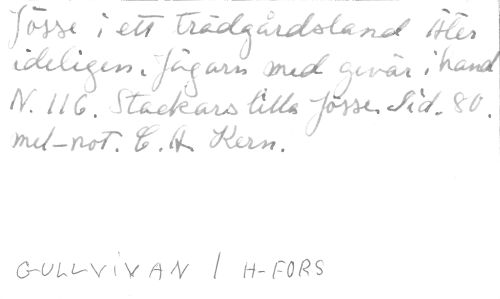 Jösse i ett trädgårdsland äter
ideligen. Jägarn med gevär i hand
N. 116. Stackars lilla Jösse. Sid. 80.
mel-not. C. A. Kern.
GULLVIVAN / H-FORS